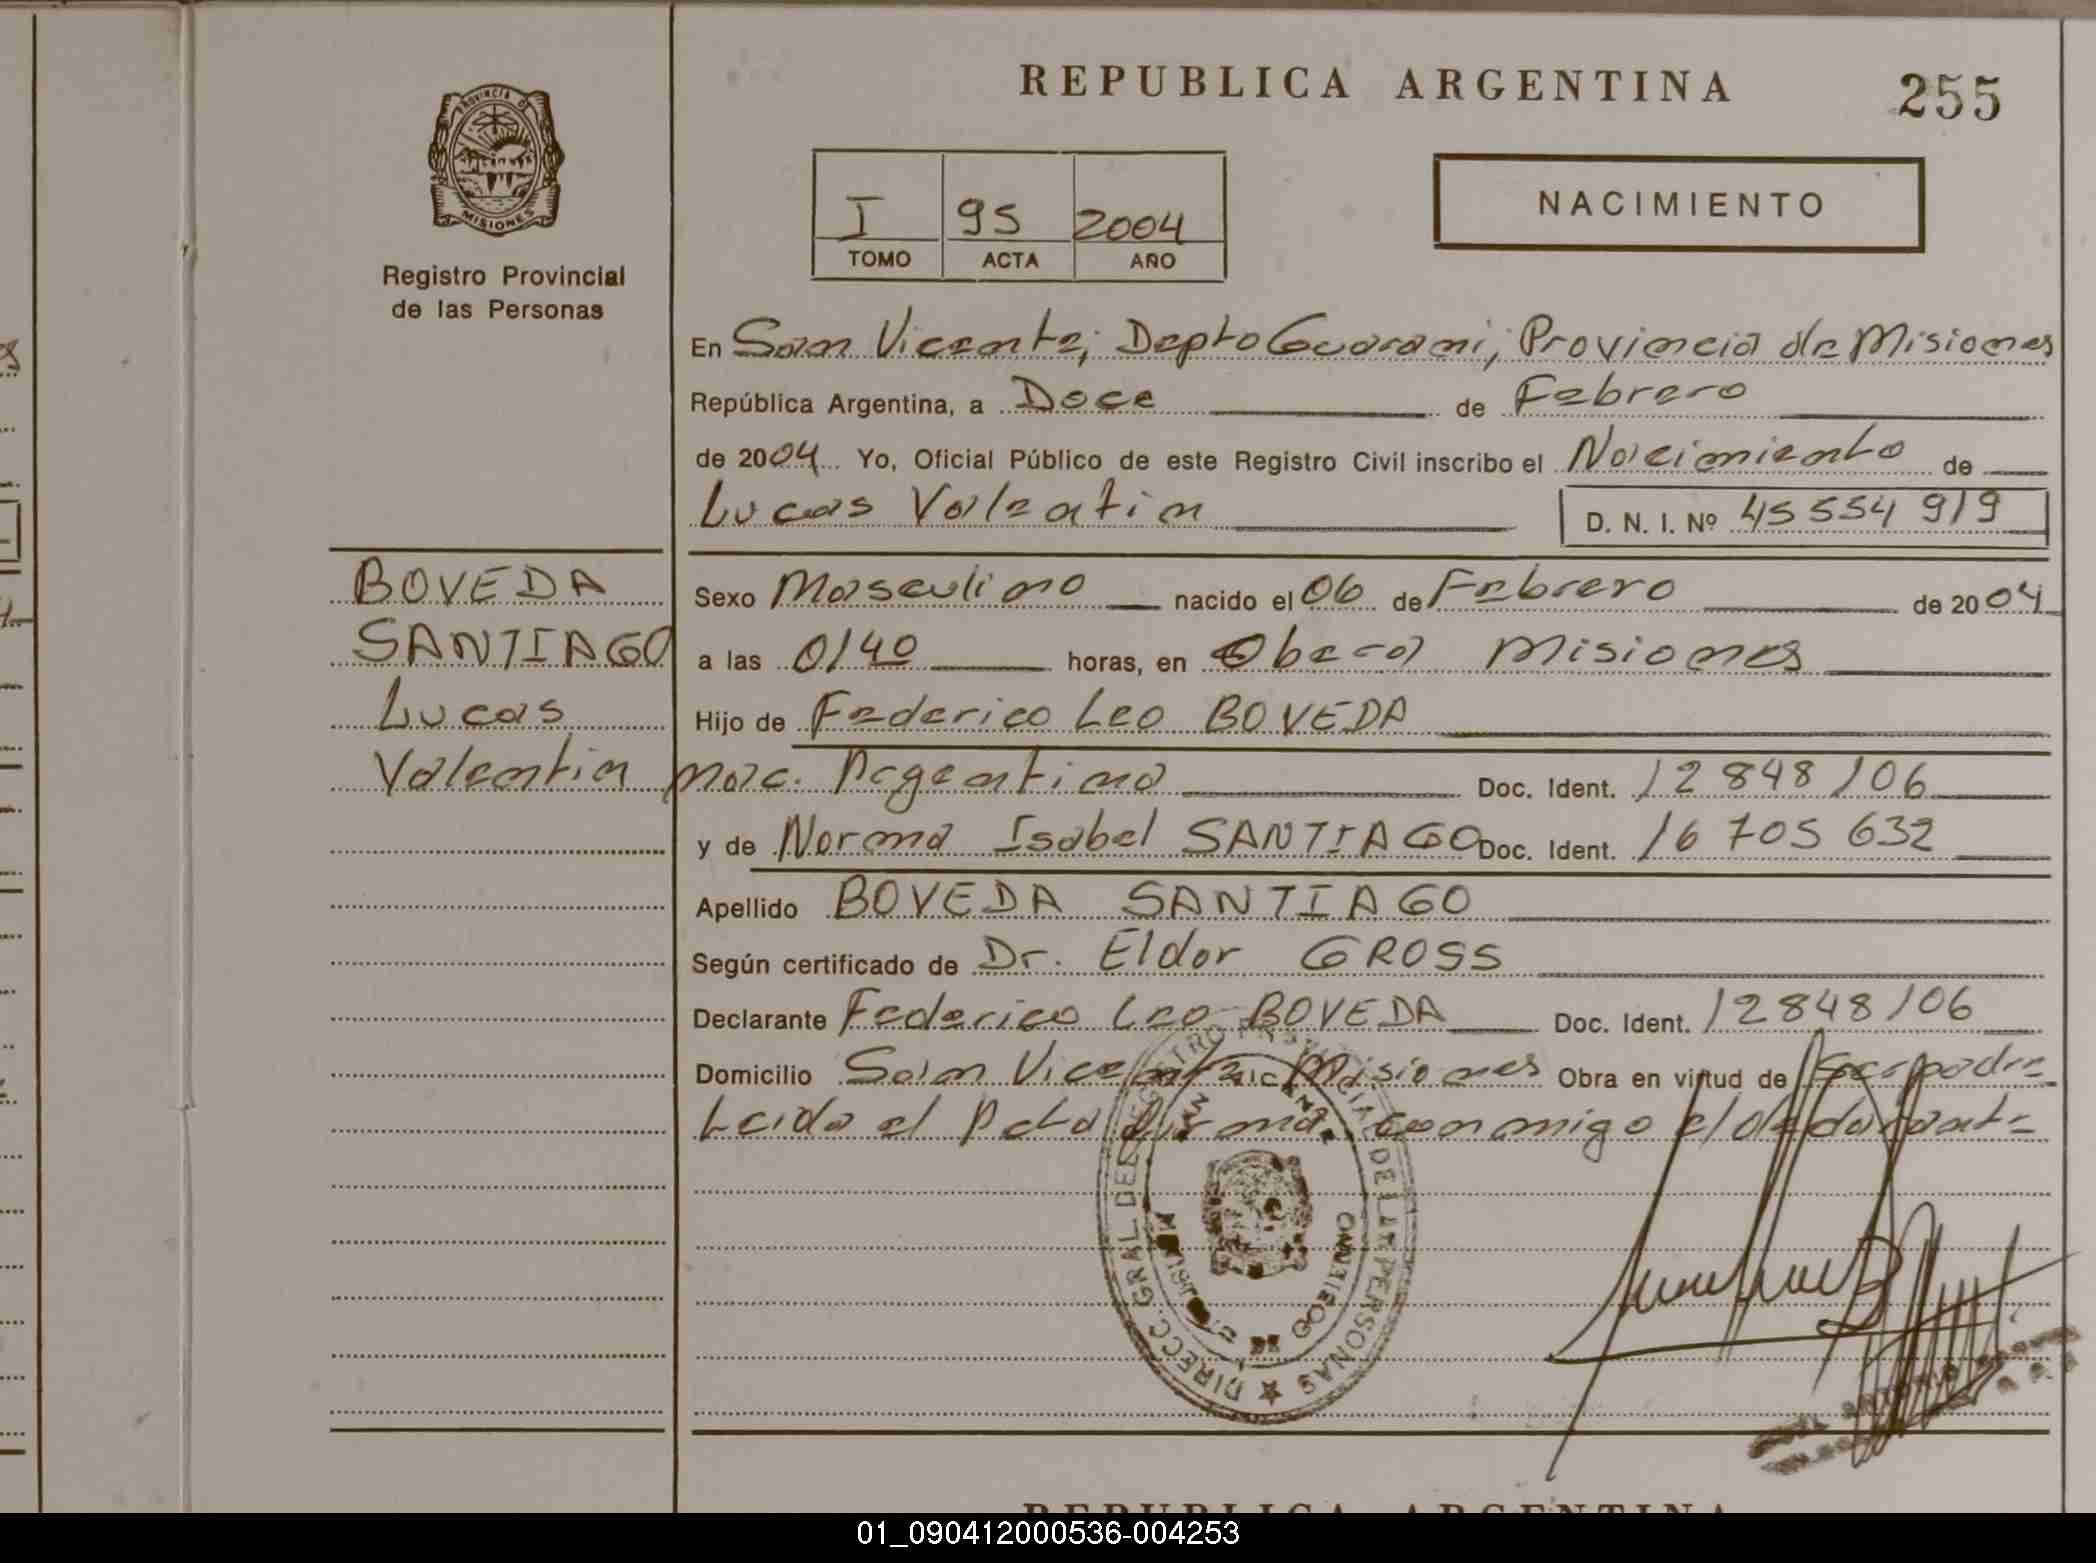 REPUBLICA ARGENTINA
255
PROVINCIA DE
MISIONES
Registro Provincial
de las Personas
I 95 2004
TOMO ACTA AÑO
NACIMIENTO
En San Vicente; Depto Guarani; Provincia de Misiones
República Argentina, a Doce de Febrero
de 2004 Yo, Oficial Público de este Registro Civil inscribo el Nacimiento de
Lucas Valentin D. N. I. Nº 45 554 919
BOVEDA
SANTIAGO
Lucas
Valentin
Sexo Masculino nacido el 06 de Febrero de 2004
a las 0140 horas, en Obera Misiones
Hijo de Federico Leo BOVEDA
nac. Argentina Doc. Ident. 12 848 106
y de Norma Isabel SANTIAGO Doc. Ident. 16 705 632
Apellido BOVEDA SANTIAGO
Según certificado de Dr. Eldor GROSS
Declarante Federico Leo BOVEDA Doc. Ident. 12848106
Domicilio San Vicente Misiones Obra en virtud de Ser padre
Leida el Acta Firma conmigo el declarante
DIRECC. GRAL. DEL REGISTRO PROVINCIAL DE LAS PERSONAS
MINISTERIO DE GOBIERNO
REPUBLICA ARGENTINA
01_090412000536-004253